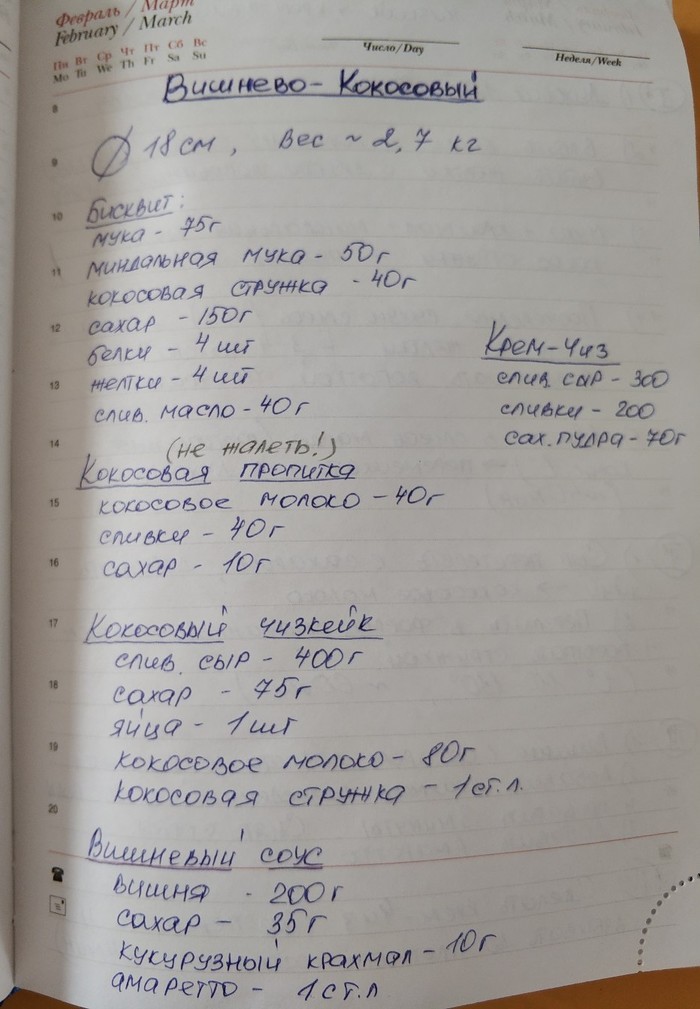 Февраль / Март
February / March
Пн Вт Ср Чт Пт Сб Вс
Mo Tu We Th Fr Sa Su
Число/Day
Неделя/Week
Вишнево-Кокосовый
8
⌀ 18 см, Вес ~ 2,7 кг
9
10 Бисквит:
мука - 75г
11 миндальная мука - 50г
кокосовая стружка - 40г
12 сахар - 150г
белки - 4 шт
13 желтки - 4 шт
слив. масло - 40г
Крем-чиз
слив. сыр - 300
сливки - 200
сах. пудра - 70г
14 (не жалеть!)
Кокосовая пропитка
15 кокосовое молоко - 40г
сливки - 40г
16 сахар - 10г
17 Кокосовый чизкейк
слив. сыр - 400г
18 сахар - 75г
яйца - 1 шт
19 кокосовое молоко - 80г
кокосовая стружка - 1 ст.л.
20
Вишневый соус
вишня - 200г
сахар - 35г
кукурузный крахмал - 10г
амаретто - 1 ст.л